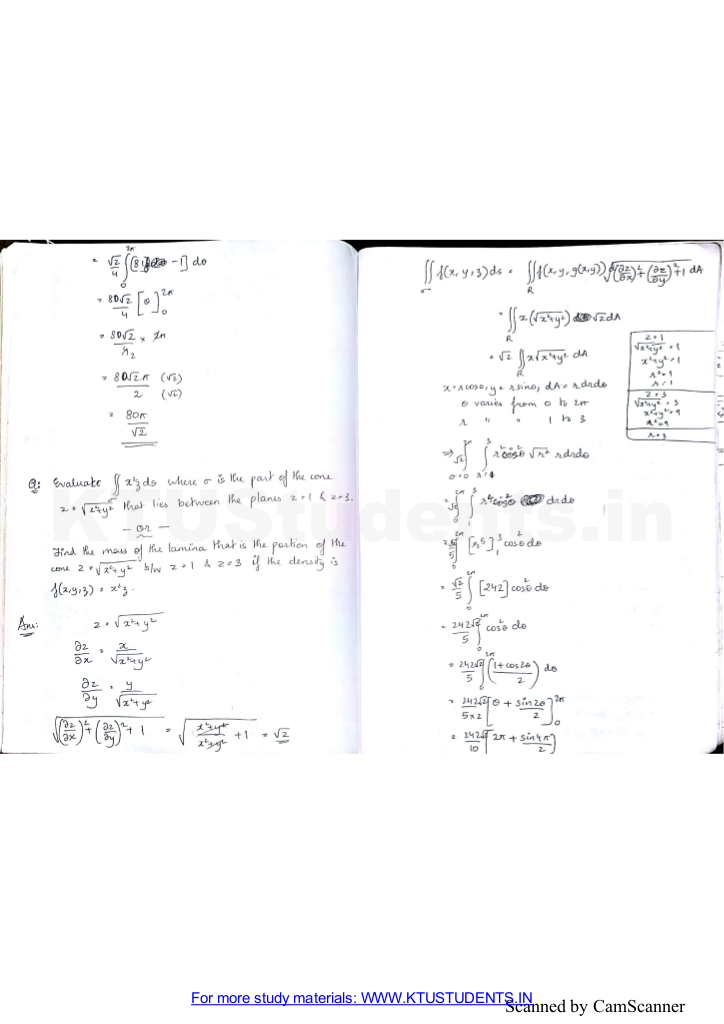 = √2/4 ∫₀^{2π} [81 - 1] dθ
= 80√2/4 [θ]₀^{2π}
= 80√2/4₂ × 2π
= 80√2π/2 (√2)/(√2)
= 80π/√2
Q: Evaluate ∬ x²z ds where σ is the part of the cone
z = √(x²+y²) that lies between the planes z=1 & z=3.
- or -
Find the mass of the lamina that is the portion of the
cone z = √(x²+y²) b/w z=1 & z=3 if the density is
f(x,y,z) = x²z.
Ans: z = √(x²+y²)
∂z/∂x = x/√(x²+y²)
∂z/∂y = y/√(x²+y²)
√((∂z/∂x)² + (∂z/∂y)² + 1) = √((x²+y²)/(x²+y²) + 1) = √2
∬_σ f(x,y,z) ds = ∬_R f(x,y,g(x,y)) √((∂z/∂x)² + (∂z/∂y)² + 1) dA
= ∬_R x(√(x²+y²)) √2 dA
= √2 ∬_R x√(x²+y²) dA
x = rcosθ, y = rsinθ, dA = rdrdθ
θ varies from 0 to 2π
r " " 1 to 3
z=1
√(x²+y²) = 1
x²+y² = 1
r² = 1
r = 1
z=3
√(x²+y²) = 3
x²+y² = 9
r² = 9
r = 3
⇒ √2 ∫_{θ=0}^{2π} ∫_{r=1}^{3} r²cos²θ √r² rdrdθ
= √2 ∫₀^{2π} ∫₁³ r⁴cos²θ drdθ
= √2/5 ∫₀^{2π} [r⁵]₁³ cos²θ dθ
= √2/5 ∫₀^{2π} [242] cos²θ dθ
= 242√2/5 ∫₀^{2π} cos²θ dθ
= 242√2/5 ∫₀^{2π} ((1+cos2θ)/2) dθ
= 242√2/(5×2) [θ + sin2θ/2]₀^{2π}
= 242√2/10 [2π + sin4π/2]
KTUStudents.in
For more study materials: WWW.KTUSTUDENTS.IN
Scanned by CamScanner